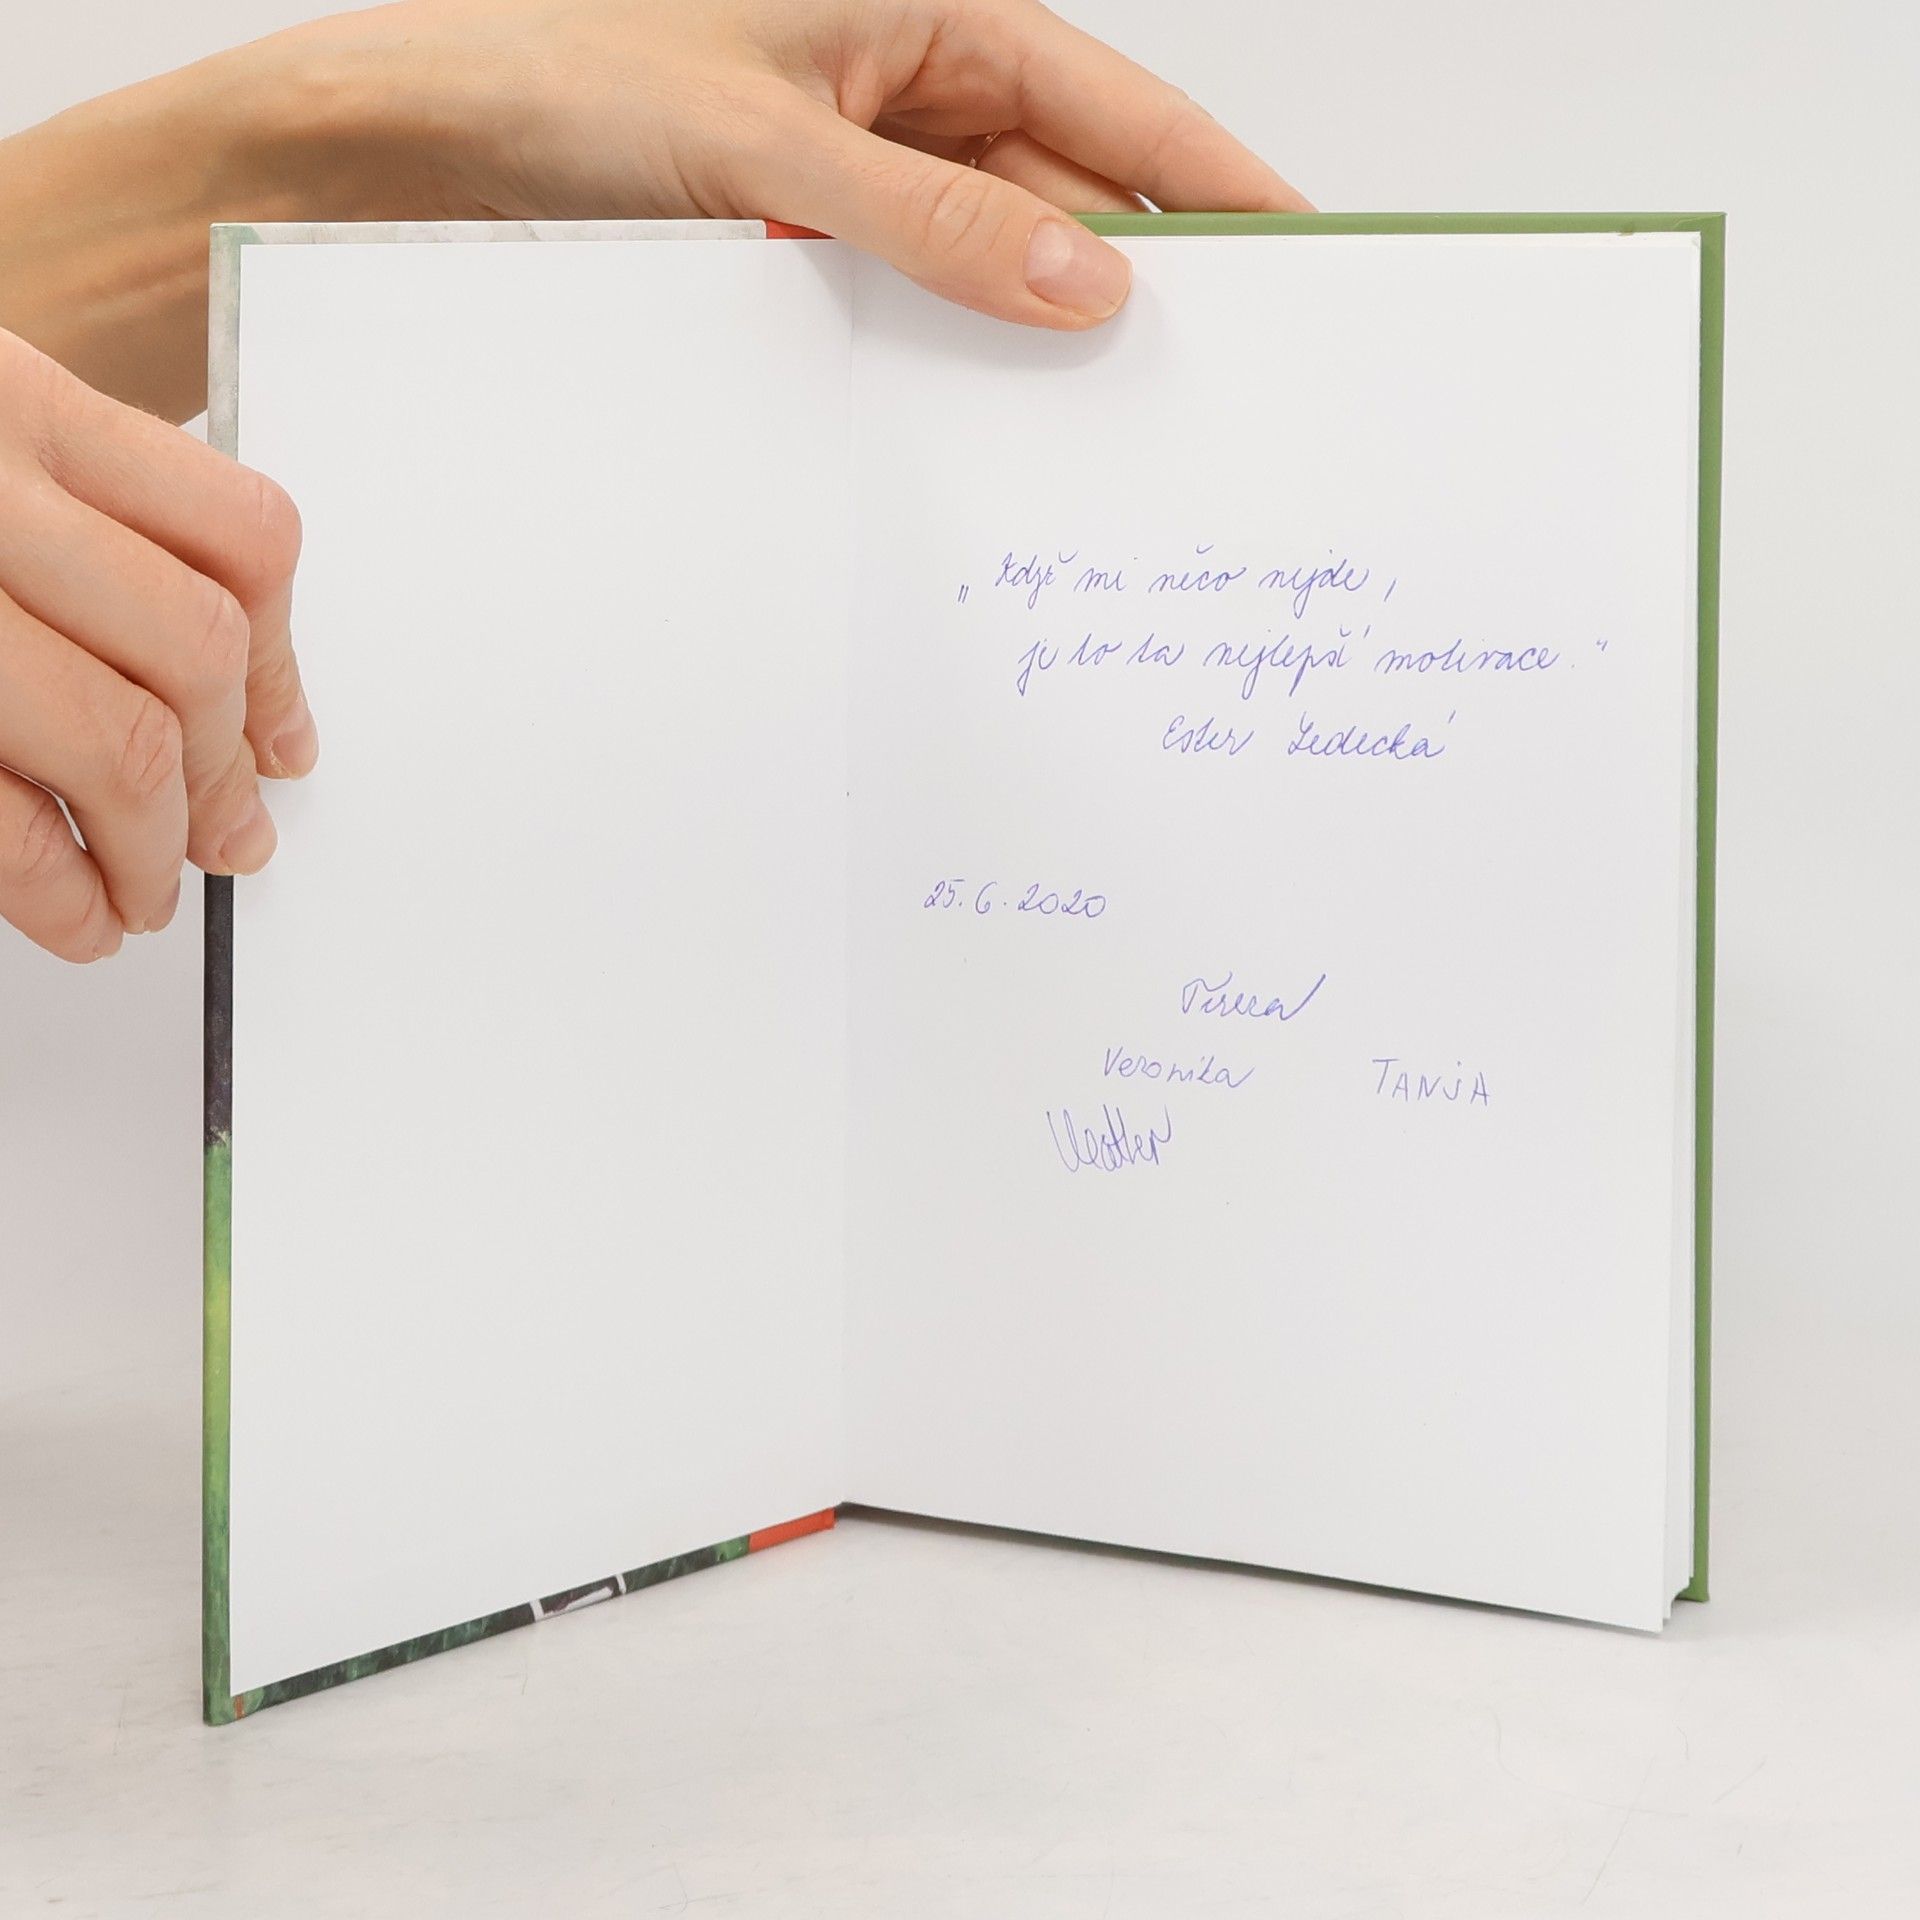 „Když mi něco nejde,
je to ta nejlepší motivace."
Ester Ledecká
25. 6. 2020
Tereza
Veronika TANJA